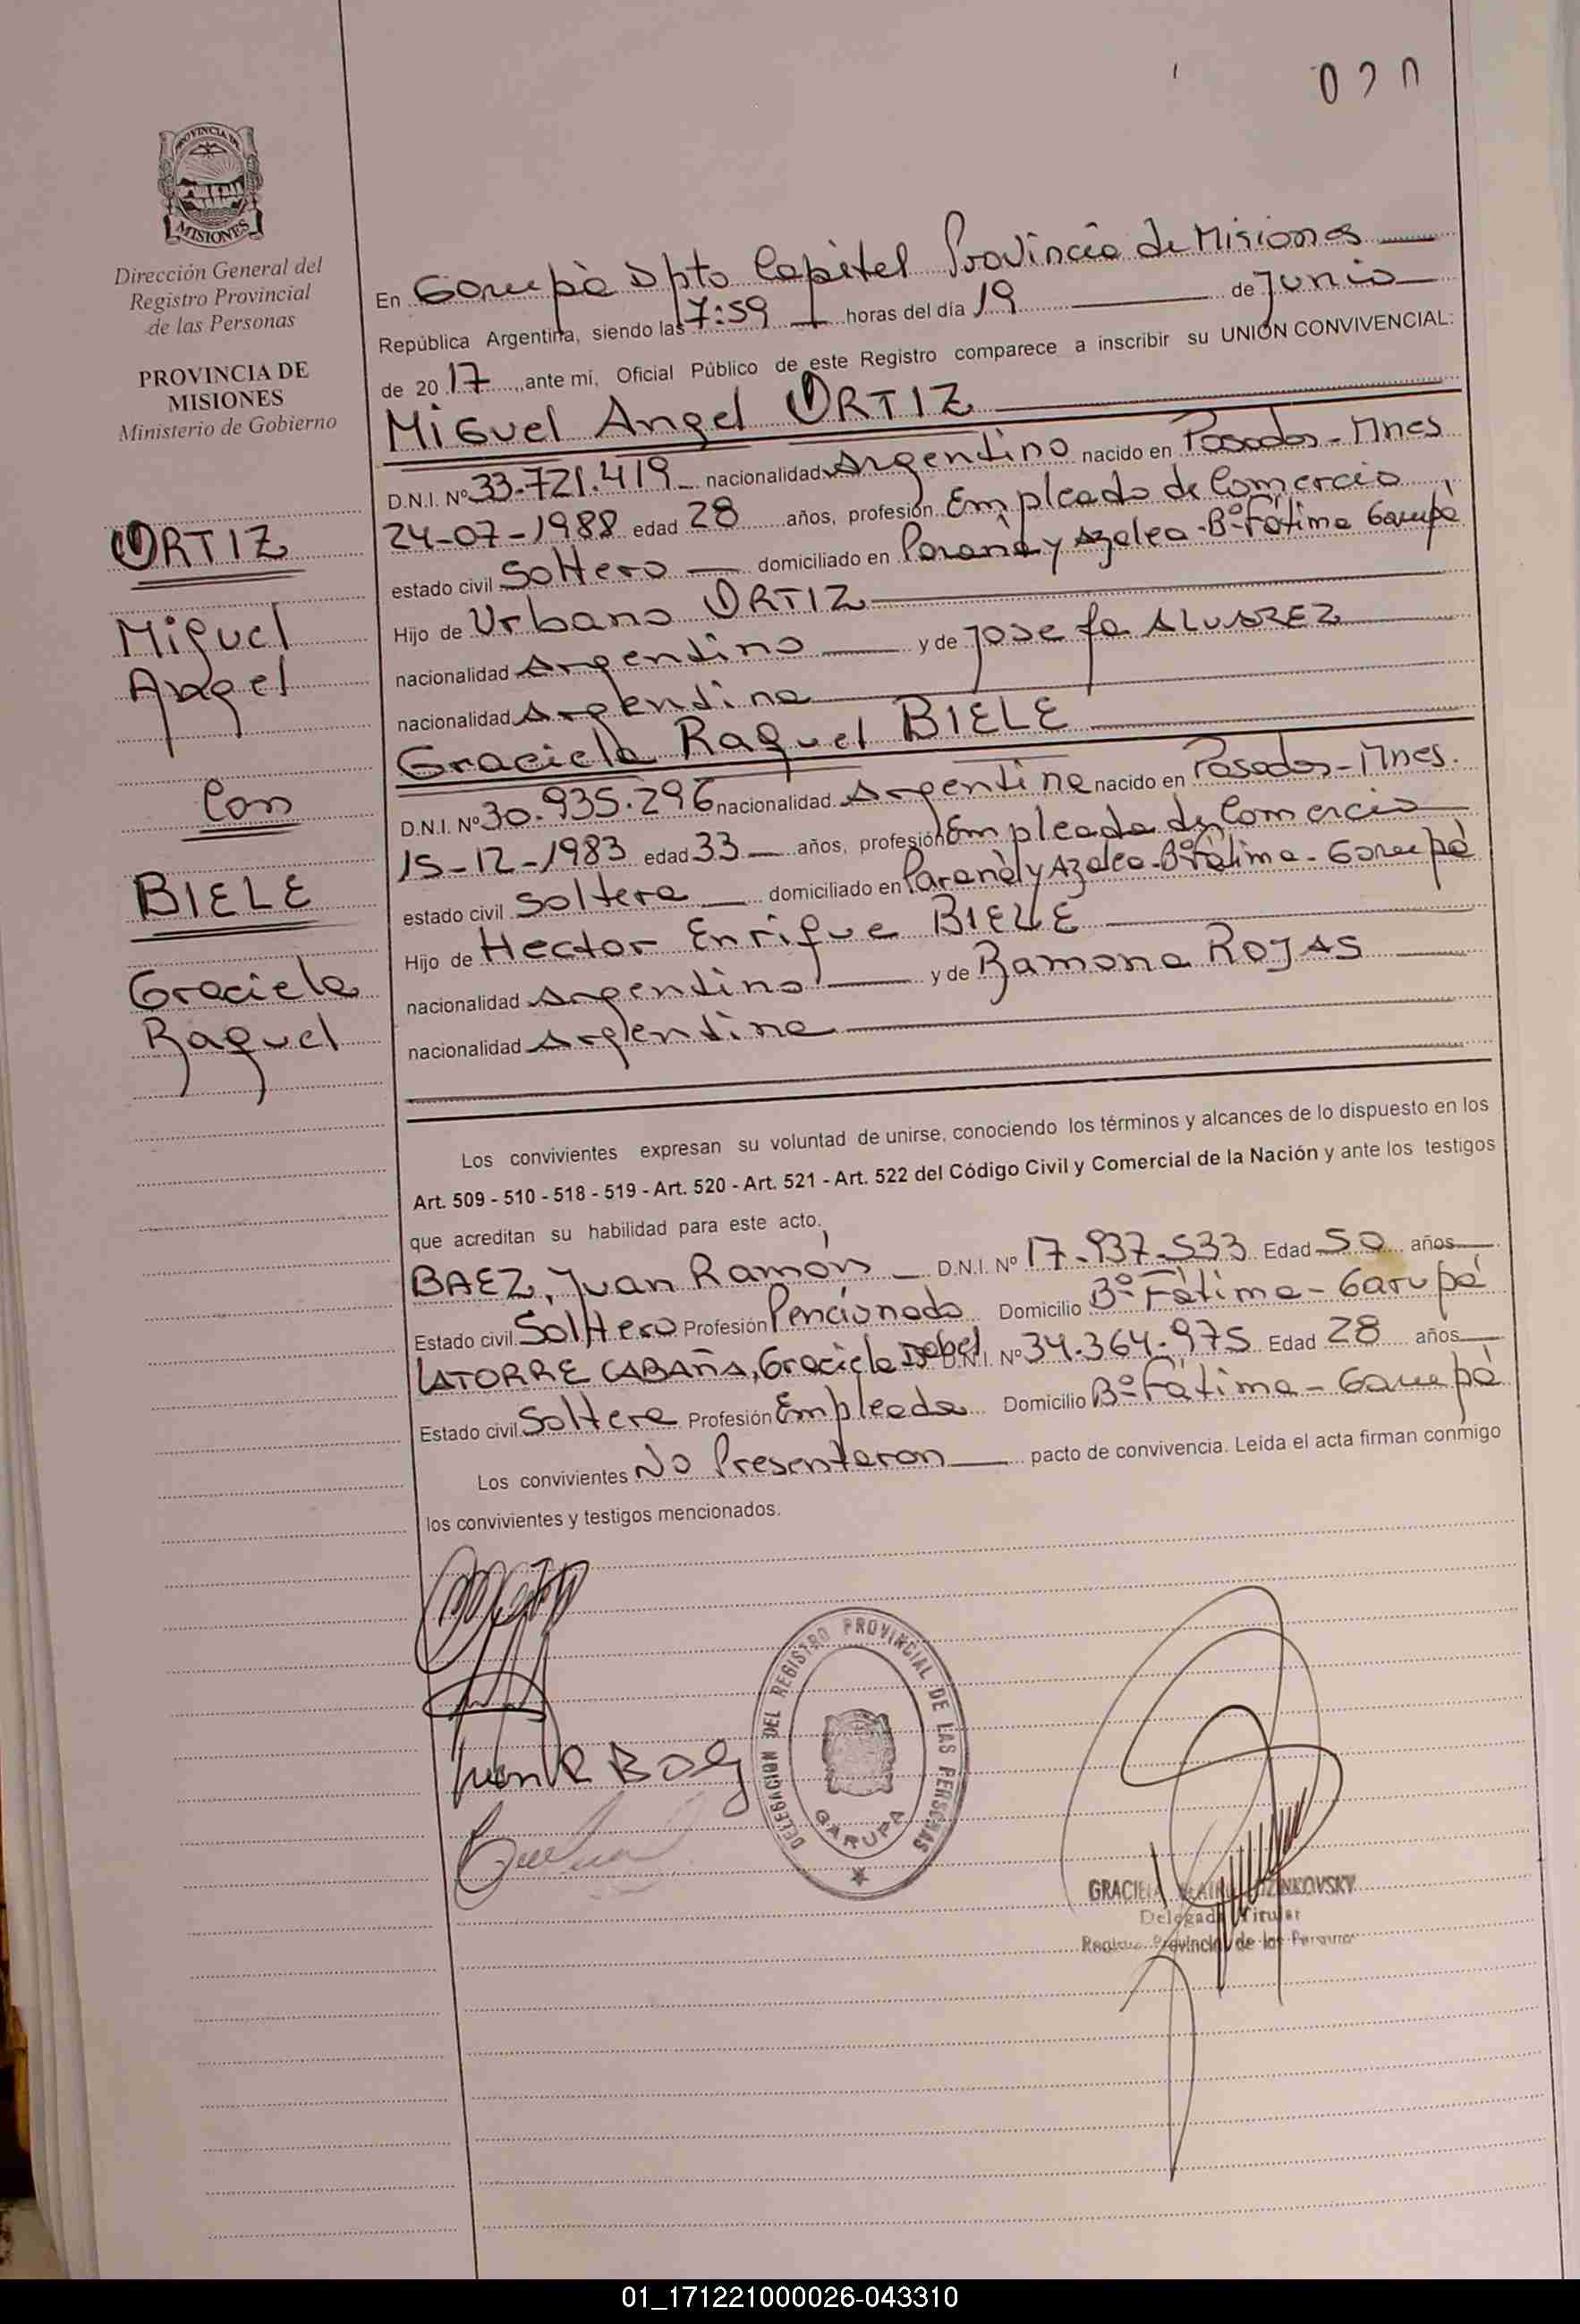 020
PROVINCIA DE
MISIONES
Dirección General del
Registro Provincial
de las Personas
PROVINCIA DE
MISIONES
Ministerio de Gobierno
ORTIZ
Miguel
Angel
Con
BIELE
Graciela
Raquel
En Garupà Dpto Capital Provincia de Misiones
República Argentina, siendo las 7:59 horas del día 19 de Junio
de 20 17 ante mí, Oficial Público de este Registro comparece a inscribir su UNIÓN CONVIVENCIAL:
Miguel Angel ORTIZ
D.N.I. Nº 33.721.419 nacionalidad Argentino nacido en Posadas - Mnes
24-07-1988 edad 28 años, profesión Empleado de Comercio
estado civil Soltero domiciliado en Paraná y Azalea - Bº Fátima Garupá
Hijo de Urbano ORTIZ
nacionalidad Argentino y de Josefa ALVAREZ
nacionalidad Argentina
Graciela Raquel BIELE
D.N.I. Nº 30.935.296 nacionalidad Argentina nacido en Posadas - Mnes.
15-12-1983 edad 33 años, profesión Empleada de Comercio
estado civil Soltera domiciliado en Paraná y Azalea - Bº Fátima - Garupá
Hijo de Hector Enrique BIELE
nacionalidad Argentino y de Ramona ROJAS
nacionalidad Argentina
Los convivientes expresan su voluntad de unirse, conociendo los términos y alcances de lo dispuesto en los
Art. 509 - 510 - 518 - 519 - Art. 520 - Art. 521 - Art. 522 del Código Civil y Comercial de la Nación y ante los testigos
que acreditan su habilidad para este acto.
BAEZ, Juan Ramón D.N.I. Nº 17.937.533 Edad 50 años
Estado civil Soltero Profesión Pencionado Domicilio Bº Fátima - Garupá
LATORRE CABAÑA, Graciela Isabel D.N.I. Nº 34.364.975 Edad 28 años
Estado civil Soltera Profesión Empleada Domicilio Bº Fátima - Garupá
Los convivientes No Presentaron pacto de convivencia. Leída el acta firman conmigo
los convivientes y testigos mencionados.
Juan R Baez
DELEGACION DEL REGISTRO PROVINCIAL DE LAS PERSONAS
GARUPA
GRACIELA
Delegada Titular
Registro Provincial de las Personas
01_171221000026-043310